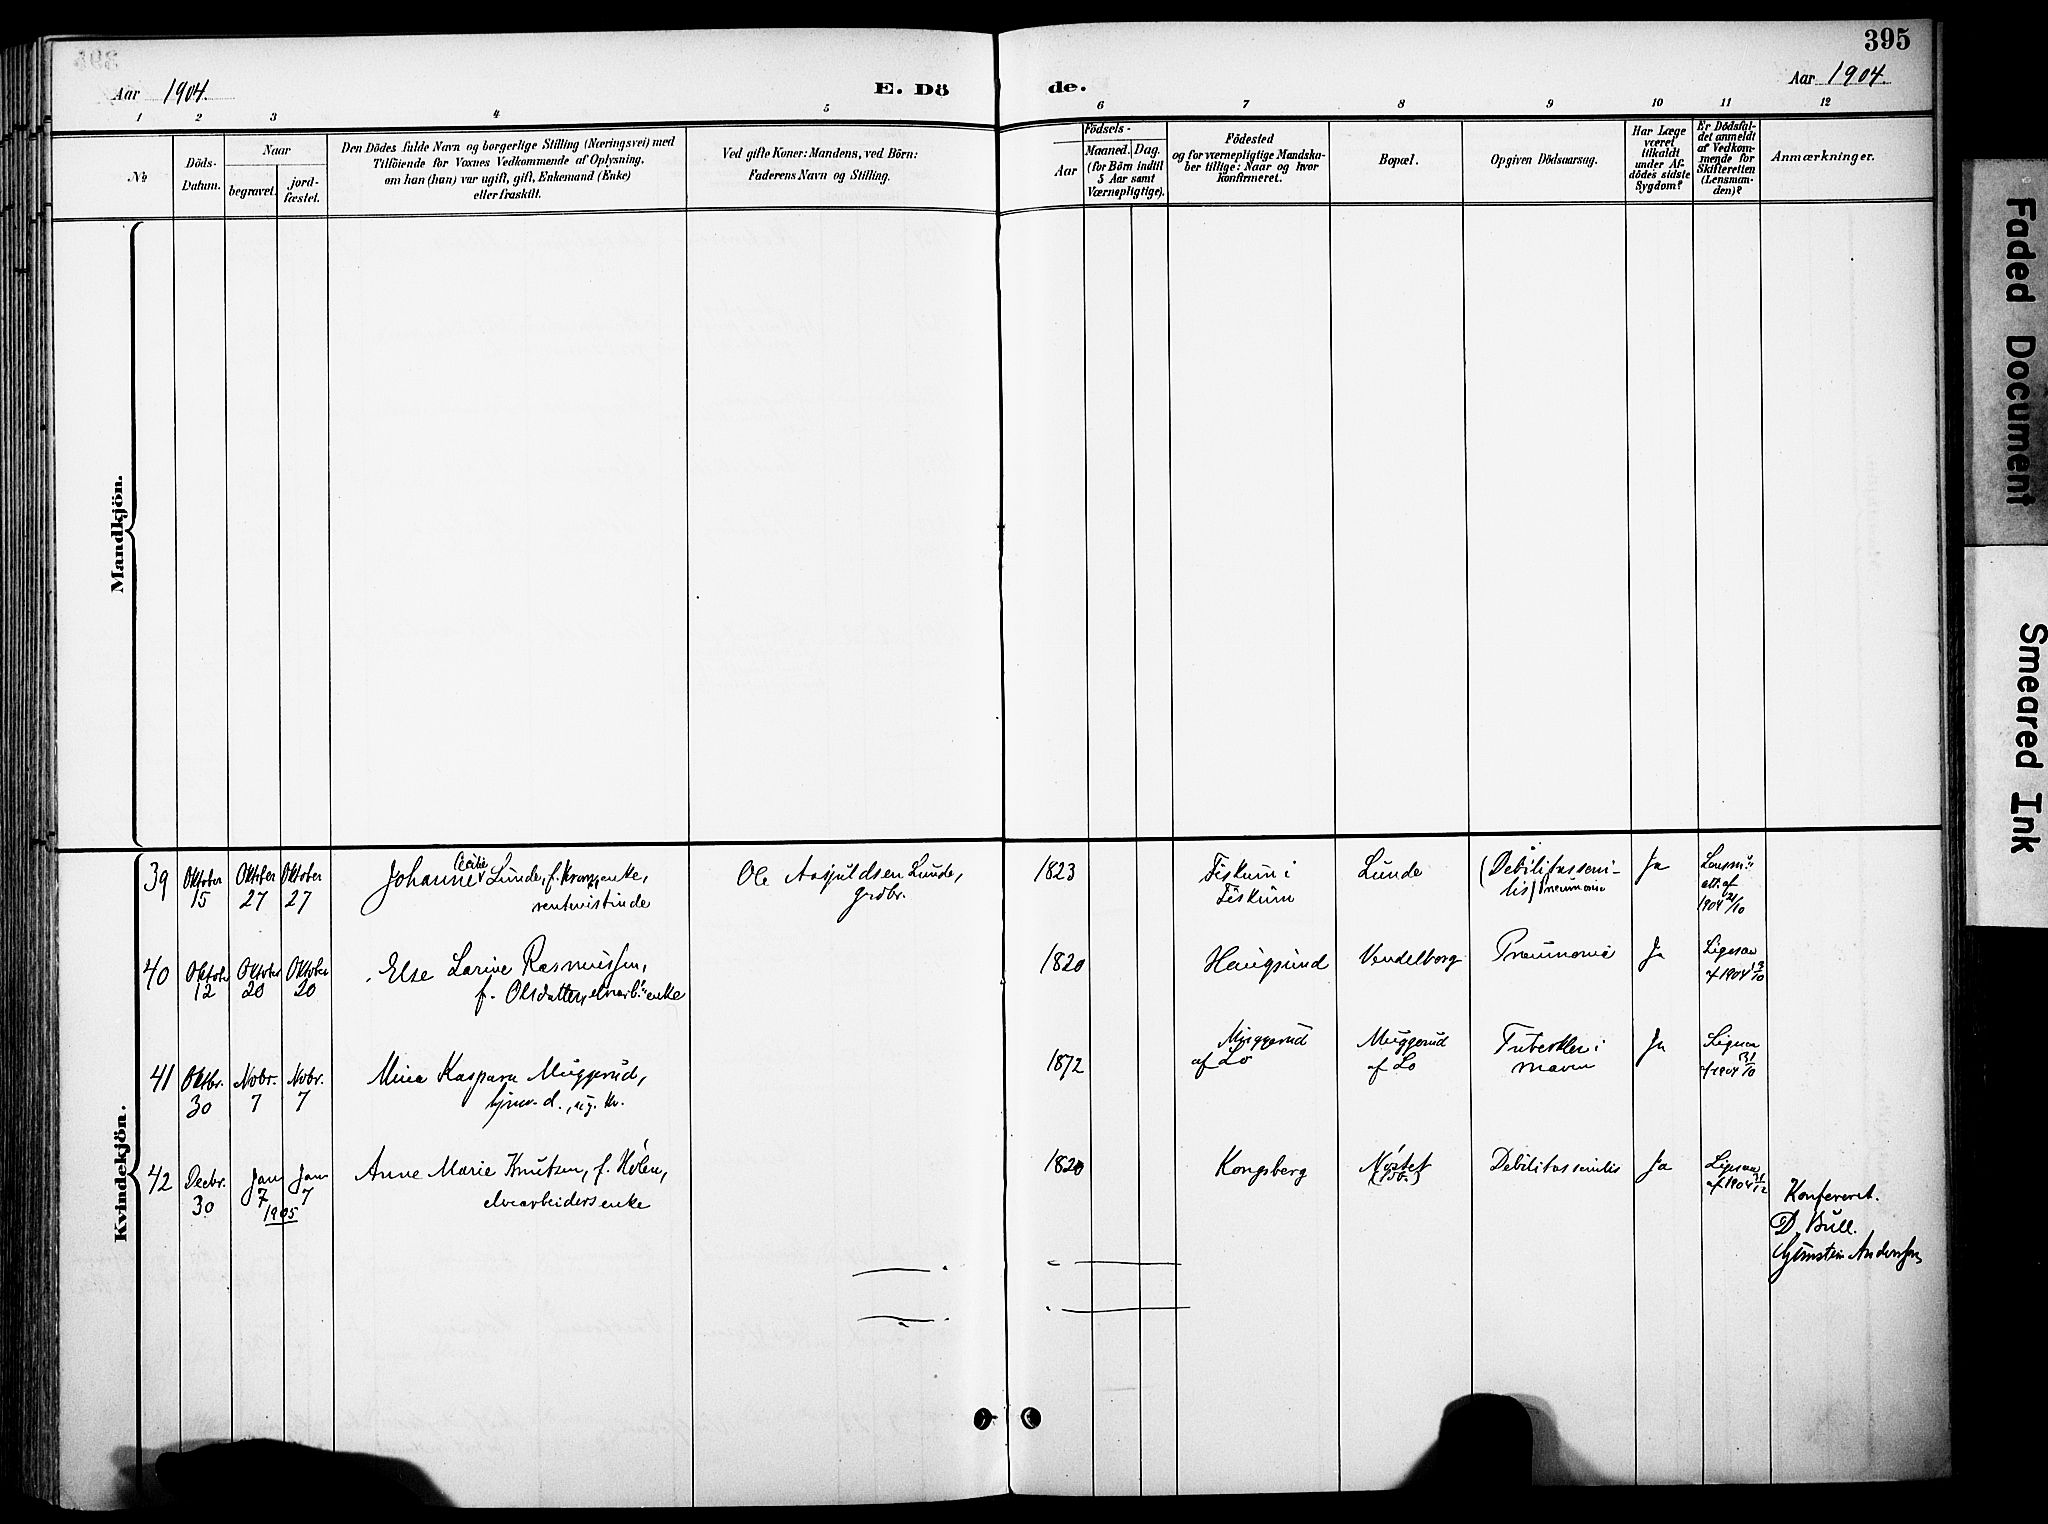 395
Aar 1904.
E. Dö
de.
Aar 1904.
1 2 3 4 5 6 7 8 9 10 11 12
No
Döds-
Datum.
Naar
begravet.
jord-
fæstet.
Den Dödes fulde Navn og borgerlige Stilling (Næringsvei) med
Tilföiende for Voxnes Vedkommende af Oplysning,
om han (hun) var ugift, gift, Enkemand (Enke)
eller fraskilt.
Ved gifte Koner: Mandens, ved Börn:
Faderens Navn og Stilling.
Födsels-
Aar
Maaned. Dag.
(for Börn indtil
5 Aar samt
Værnepligtige).
Födested
og for værnepligtige Mandska-
ber tillige: Naar og hvor
konfirmeret.
Bopæl.
Opgiven Dödsaarsag.
Har Læge
været
tilkaldt
under Af-
dödes sidste
Sygdom?
Er Dödsfal-
det anmeldt
af Vedkom-
mende for
Skifteretten
(Lensman-
den)?
Anmærkninger.
Mandkjön.
Kvindekjön.
39 Oktober 15 Oktber 27 Oktober 27
Cecilie
Johanne Lunde, f. enke,
rentenistinde
Ole Asjuldsen Lunde,
grdbr.
1823
Fiskum i
Fiskum
Lunde
(Debilitas seni-
lis) Pneumonie
Ja
1904 21/10
40 Oktobr 12 Oktober 20 Oktober 20
Else Larine Rasmussen,
f. Olsdatter, elvearb. enke
1820
Haugsund
Vendelborg
Pneumonie
Ja
af 1904 13/10
41 Oktbr. 30 Novbr. 7 Novbr. 7
Mina Kaspara Muggerud,
ug. kv.
1872
Muggerud
af Lo
Muggerud
af Lo
Tuberkler i
maven
Ja
af 1904 31/10
42 Decbr. 30 Jan 7 Jan 7
1905
Anne Marie Knutsen, f. Holen,
elvearbeiders enke
1820
Kongsberg
Nøstet
Debilitas senilis
Ja
af 1904 31/12
Konfereret.
D. Bull.
Andersen
Faded Document
Smeared Ink